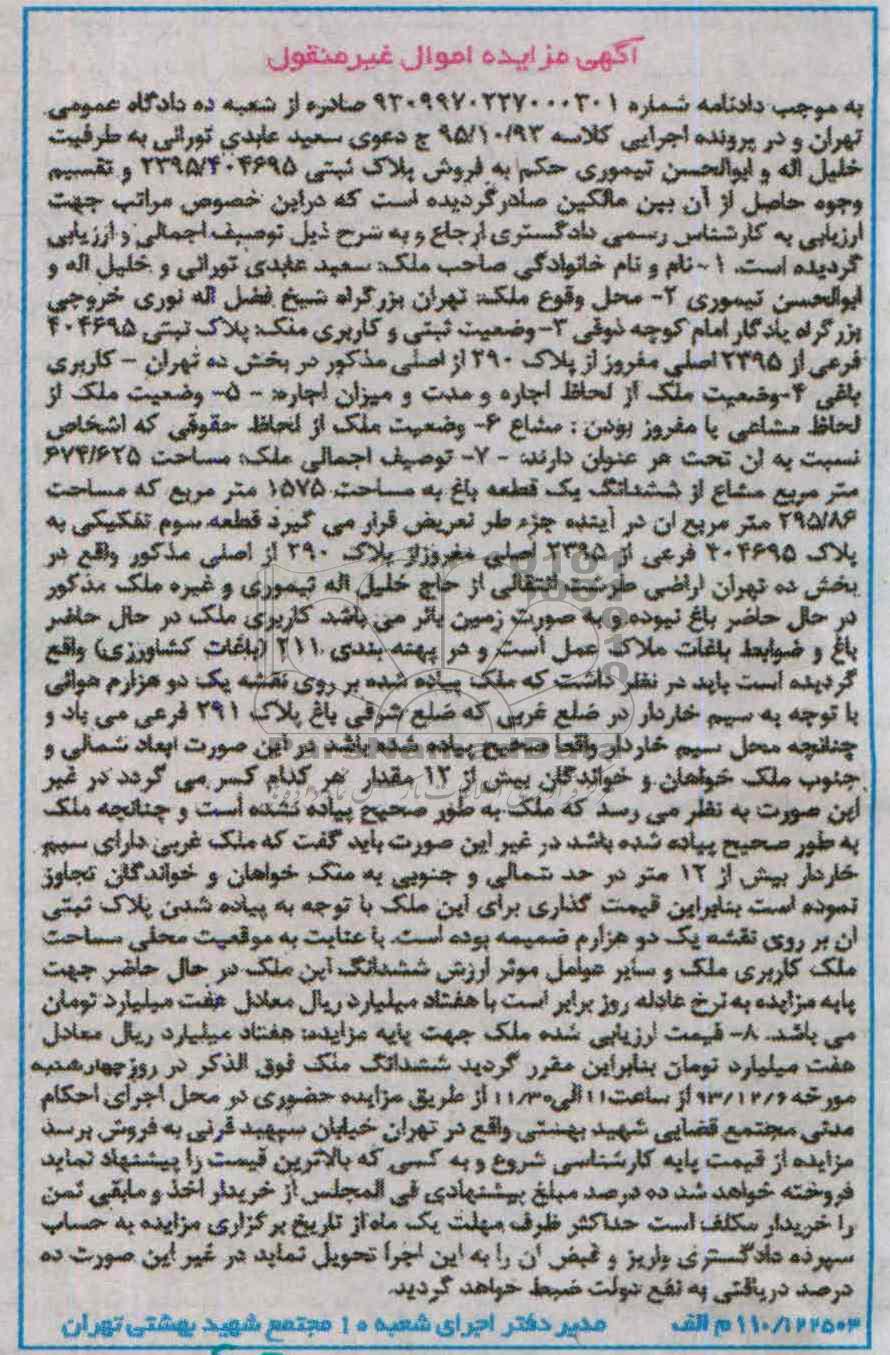 آگهی مزایده اموال غیرمنقول
به موجب دادنامه شماره ۹۳۰۹۹۷۰۲۲۷۰۰۰۳۰۱ صادره از شعبه ده دادگاه عمومی
تهران و در پرونده اجرایی کلاسه ۹۵/۱۰/۹۳ ج دعوی سعید عابدی تورانی به طرفیت
خلیل اله و ابوالحسن تیموری حکم به فروش پلاک ثبتی ۲۳۹۵/۴۰۴۶۹۵ و تقسیم
وجوه حاصل از آن بین مالکین صادرگردیده است که دراین خصوص مراتب جهت
ارزیابی به کارشناس رسمی دادگستری ارجاع و به شرح ذیل توصیف اجمالی و ارزیابی
گردیده است. ۱-نام و نام خانوادگی صاحب ملک: سعید عابدی تورانی و خلیل اله و
ابوالحسن تیموری ۲- محل وقوع ملک: تهران بزرگراه شیخ فضل اله نوری خروجی
بزرگراه یادگار امام کوچه ذوقی ۳-وضعیت ثبتی و کاربری ملک: پلاک ثبتی ۴۰۴۶۹۵
فرعی از ۲۳۹۵ اصلی مفروز از پلاک ۲۹۰ از اصلی مذکور در بخش ده تهران - کاربری
باغی ۴-وضعیت ملک از لحاظ اجاره و مدت و میزان اجاره: - ۵- وضعیت ملک از
لحاظ مشاعی یا مفروز بودن: مشاع ۶- وضعیت ملک از لحاظ حقوقی که اشخاص
نسبت به ان تحت هر عنوان دارند: - ۷- توصیف اجمالی ملک: مساحت ۶۷۴/۶۲۵
متر مربع مشاع از ششدانگ یک قطعه باغ به مساحت ۱۵۷۵ متر مربع که مساحت
۲۹۵/۸۶ متر مربع ان در آینده جزء طر تعریض قرار می گیرد قطعه سوم تفکیکی به
پلاک ۴۰۴۶۹۵ فرعی از ۲۳۹۵ اصلی مفروزاز پلاک ۲۹۰ از اصلی مذکور واقع در
بخش ده تهران اراضی طرشت انتقالی از حاج خلیل اله تیموری و غیره ملک مذکور
در حال حاضر باغ نبوده و به صورت زمین بائر می باشد کاربری ملک در حال حاضر
باغ و ضوابط باغات ملاک عمل است و در پهنه بندی ۲۱۱ (باغات کشاورزی) واقع
گردیده است باید در نظر داشت که ملک پیاده شده بر روی نقشه یک دو هزارم هوائی
با توجه به سیم خاردار در ضلع غربی که ضلع شرقی باغ پلاک ۲۹۱ فرعی می باد و
چنانچه محل سیم خاردار واقعا صحیح پیاده شده باشد در این صورت ابعاد شمالی و
جنوب ملک خواهان و خواندگان بیش از ۱۲ مقدار هر کدام کسر می گردد در غیر
این صورت به نظر می رسد که ملک به طور صحیح پیاده نشده است و چنانچه ملک
به طور صحیح پیاده شده باشد در غیر این صورت باید گفت که ملک غربی دارای سیم
خاردار بیش از ۱۲ متر در حد شمالی و جنوبی به ملک خواهان و خواندگان تجاوز
نموده است بنابراین قیمت گذاری برای این ملک با توجه به پیاده شدن پلاک ثبتی
ان بر روی نقشه یک دو هزارم ضمیمه بوده است. با عنایت به موقعیت محلی مساحت
ملک کاربری ملک و سایر عوامل موثر ارزش ششدانگ این ملک در حال حاضر جهت
پایه مزایده به نرخ عادله روز برابر است با هفتاد میلیارد ریال معادل هفت میلیارد تومان
می باشد. ۸- قیمت ارزیابی شده ملک جهت پایه مزایده: هفتاد میلیارد ریال معادل
هفت میلیارد تومان بنابراین مقرر گردید ششدانگ ملک فوق الذکر در روز چهارشنبه
مورخه ۹۳/۱۲/۶ از ساعت ۱۱ الی ۱۱/۳۰ از طریق مزایده حضوری در محل اجرای احکام
مدنی مجتمع قضایی شهید بهشتی واقع در تهران خیابان سپهبد قرنی به فروش برسد
مزایده از قیمت پایه کارشناسی شروع و به کسی که بالاترین قیمت را پیشنهاد نماید
فروخته خواهد شد ده درصد مبلغ پیشنهادی فی المجلس از خریدار اخذ و مابقی ثمن
را خریدار مکلف است حداکثر ظرف مهلت یک ماه از تاریخ برگزاری مزایده به حساب
سپرده دادگستری واریز و قبض ان را به این اجرا تحویل نماید در غیر این صورت ده
درصد دریافتی به نفع دولت ضبط خواهد گردید.
۱۱۰/۱۲۲۵۰۳ م الف مدیر دفتر اجرای شعبه ۱۰ مجتمع شهید بهشتی تهران